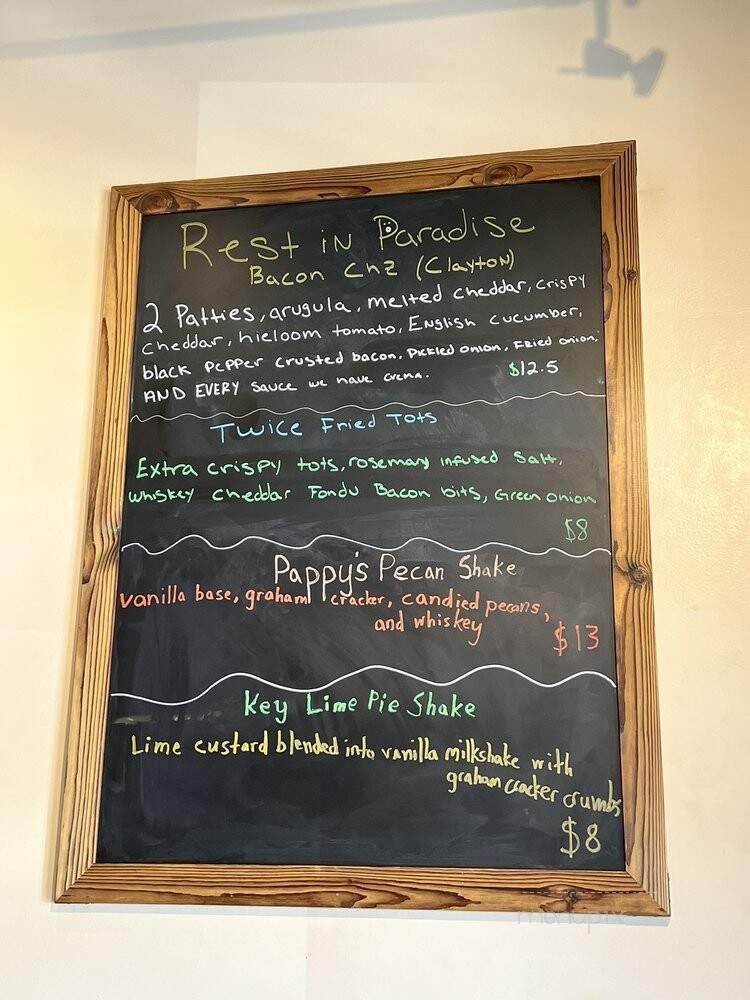 Rest in Paradise
Bacon Chz (Clayton)
2 Patties, arugula, melted cheddar, crispy
cheddar, hieloom tomato, English cucumber,
black pepper crusted bacon, pickled onion, fried onion,
AND EVERY sauce we have crema.
$12.5
Twice Fried Tots
Extra crispy tots, rosemary infused salt,
whiskey cheddar Fondu Bacon bits, Green onion
$8
Pappy's Pecan Shake
vanilla base, graham cracker, candied pecans,
and whiskey
$13
Key Lime Pie Shake
Lime custard blended into vanilla milkshake with
graham cracker crumbs
$8
menupix